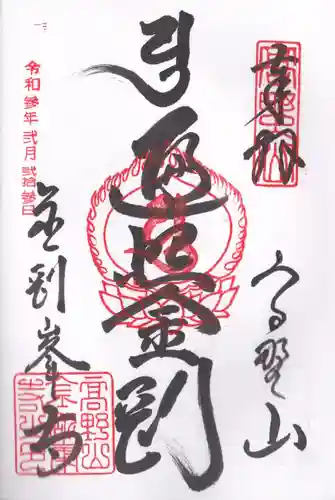 奉拝
高野山
遍照金剛
金剛峯寺
令和参年弐月弐拾参日
高野山